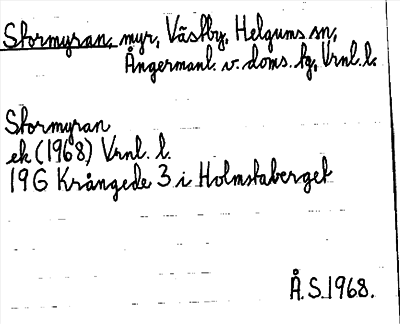 Stormyran, myr, Västby, Helgums sn,
Ångermanl. v. doms. fg, Vrnl. l.
Stormyran
ek (1968) Vrnl. l.
19G Krångede 3 i Holmstaberget
Å.S.1968.